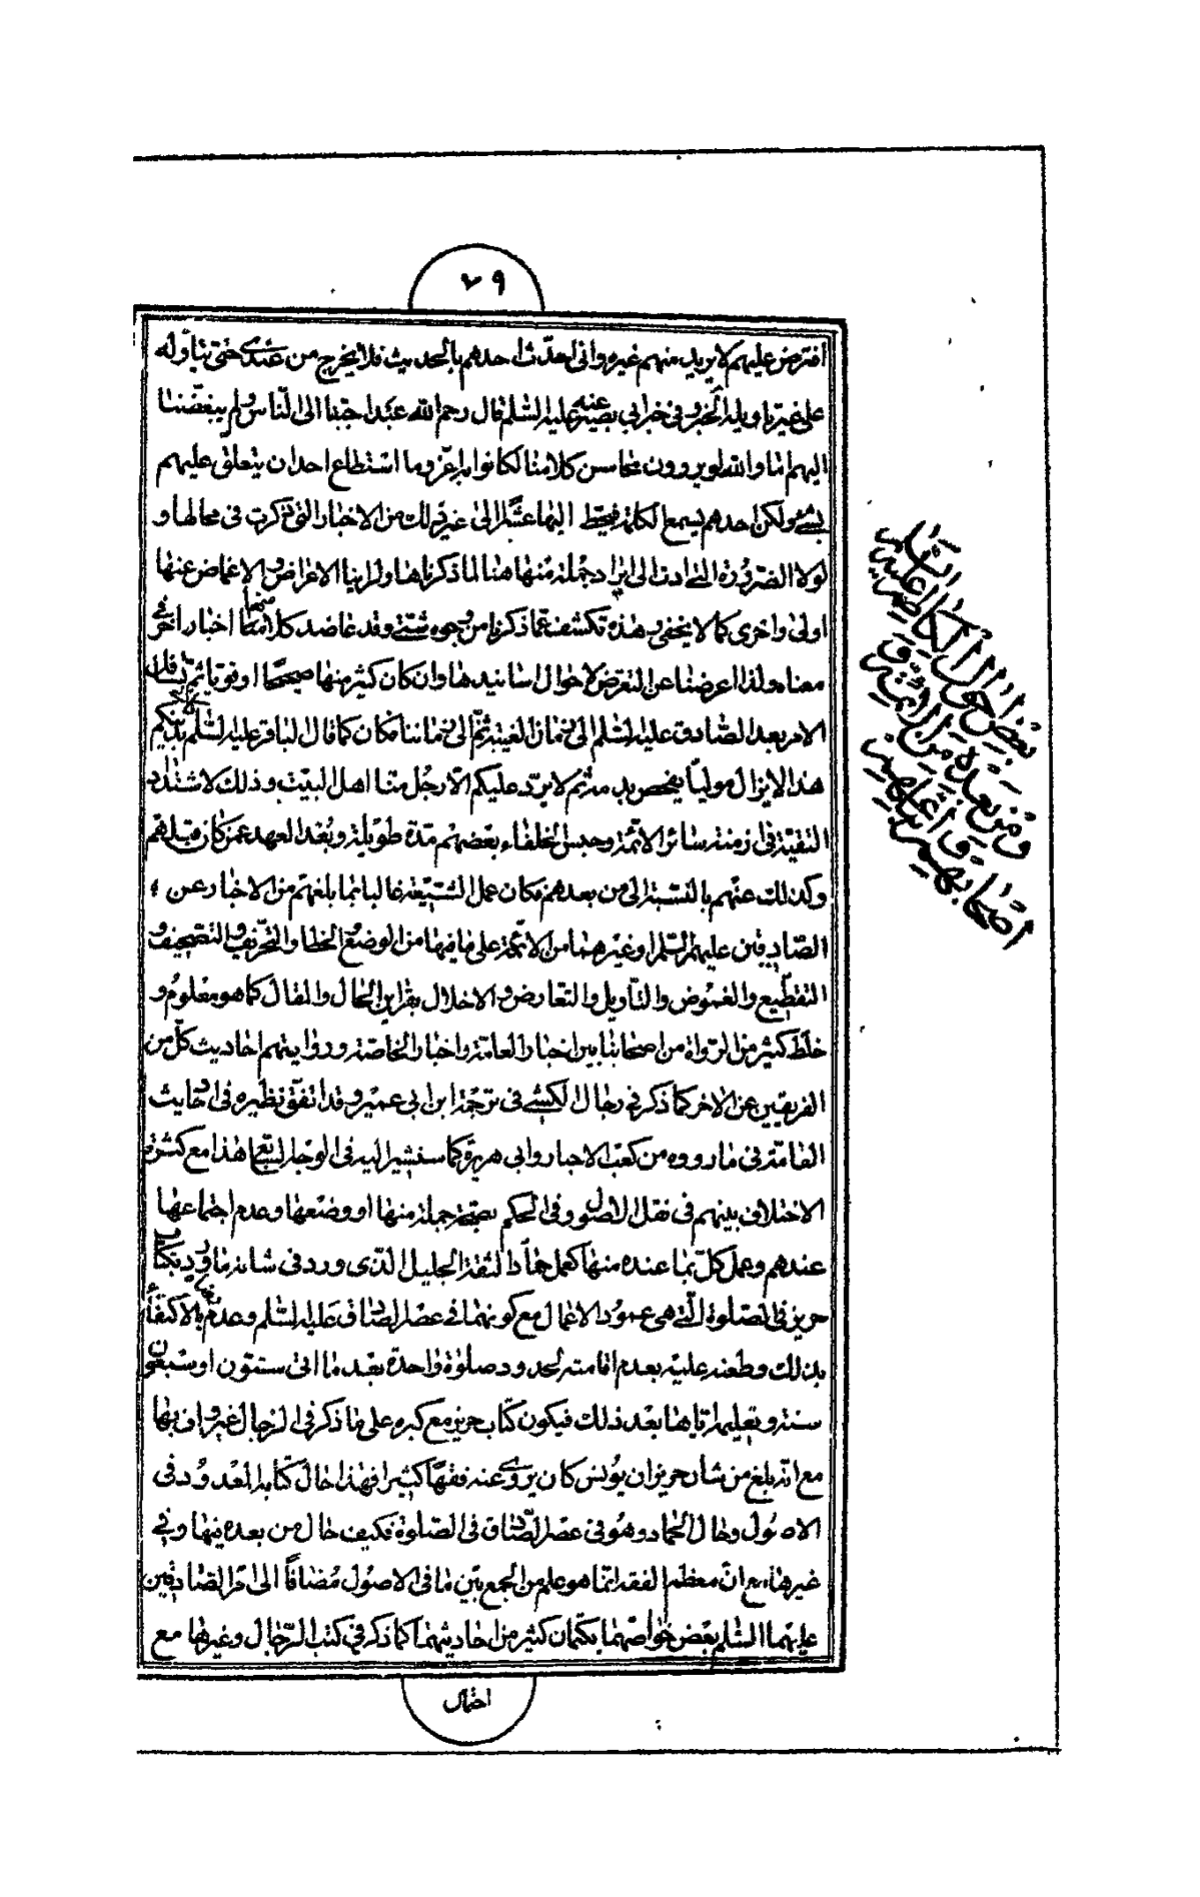 ٧٩
افترض عليهم لا يريد منهم غيره وانى احدّث احدهم بالحديث فلا يخرج من عندى حتى يتأوله
على غير تاويله الخبر وفى خبر ابي بصير عنه عليه السّلم قال رحم الله عبدا حببنا الى النّاس ولم يبغضنا
اليهم اما والله لو يروون محاسن كلامنا لكانوا به اعزّ وما استطاع احد ان يتعلق عليهم
بشئ ولكن احدهم يسمع الكلمة فيحطّ اليها عشرا الى غير ذلك من الاخبار التى ذكرت فى محالها و
لولا الضرورة التى ادت الى ايراد جملة منها هنا لما ذكرناها ولراينا الاعراض والاغماض عنها
اولى واحرى كما لا يخفى وهذه تكشف عما ذكرنا من وجوه شتّى وقد عاضد كلا منها اخبار اخر فى
معناه ولذا اعرضنا عن التعرض لاحوال اسانيدها وان كان كثير منها صحيحا او قويا ثمّ
الامر بعد الصّادق عليه السّلم الى زمان الغيبة ثمّ الى زماننا فكان كما قال الباقر عليه السّلم
هذا لا يزال مولياً يفحص بدمه ثم لا يردّ عليكم الّا رجل منا اهل البيت وذلك لاشتداد
التقيّة فى ازمنة سائر الائمّة وحبس الخلفاء بعضهم مدّة طويلة وبُعد العهد عمن كان قبلهم
وكذلك عنهم بالنسبة الى من بعدهم فكان عمل الشيعة غالبا بما بلغهم من الاخبار عن
الصّادقين عليهم السّلم او غيرهما من الائمّة على ما فيها من الوضع والخطا والتحريف والتصحيف و
التقطيع والغموض والتأويل والتعارض والاخلال بقراين الحال والمقال كما هو معلوم و
خلط كثير من الرّواة من اصحابنا بين اخبار العامّة واخبار الخاصّة وروايتهم احاديث كلّ من
الفريقين عن الاخر كما ذكر فى رجال الكشى فى ترجمة ابن ابي عمير وقد اتفق نظيره فى احاديث
العامّة فى ما رووه من كعب الاحبار وابى هريرة كما سنشير اليه فى الوجه السّابع هذا مع كثرة
الاختلاف بينهم فى نقل الاصول وفى الحكم بصحّة جملة منها او وضعها وعدم اجتماعها
عندهم وعمل كلّ بما عنده منها كعمل حمّاد الثقة الجليل الذى ورد فى شانه ما ورد بكتاب
حريز فى الصّلوة الّتى هى عمود الاعمال مع كونهما فى عصر الصّادق عليه السّلم وعدم الاكتفاء
بذلك وطعنه عليه بعدم اقامته لحدود صلوة واحدة بعد ما اتى ستون او سبعون
سنة وتعليمه اياها بعد ذلك فيكون كتاب حريز مع كبره على ما ذكر فى الرّجال غير واف بها
مع انّه بلغ من شان حريز ان يونس كان يروى عنه فقها كثيرا فهذا حال كتابه المعدود فى
الاصول وحال الحمّاد وهو فى عصر الصّادق فى الصّلوة فكيف حال من بعده فيها وفى
غيرها مع انّ معظم الفقه انّما هو علم من الجمع بين ما فى الاصول مُضافاً الى امر الصّادقين
عليهما السّلم بعض خواصّهما بكتمان كثير من احاديثهما كما ذكر فى كتب الرّجال وغيرها مع
احتمال
بعض احوال الكاظم عليه السّلام
ومن بعده من الائمة و
اصحابهم